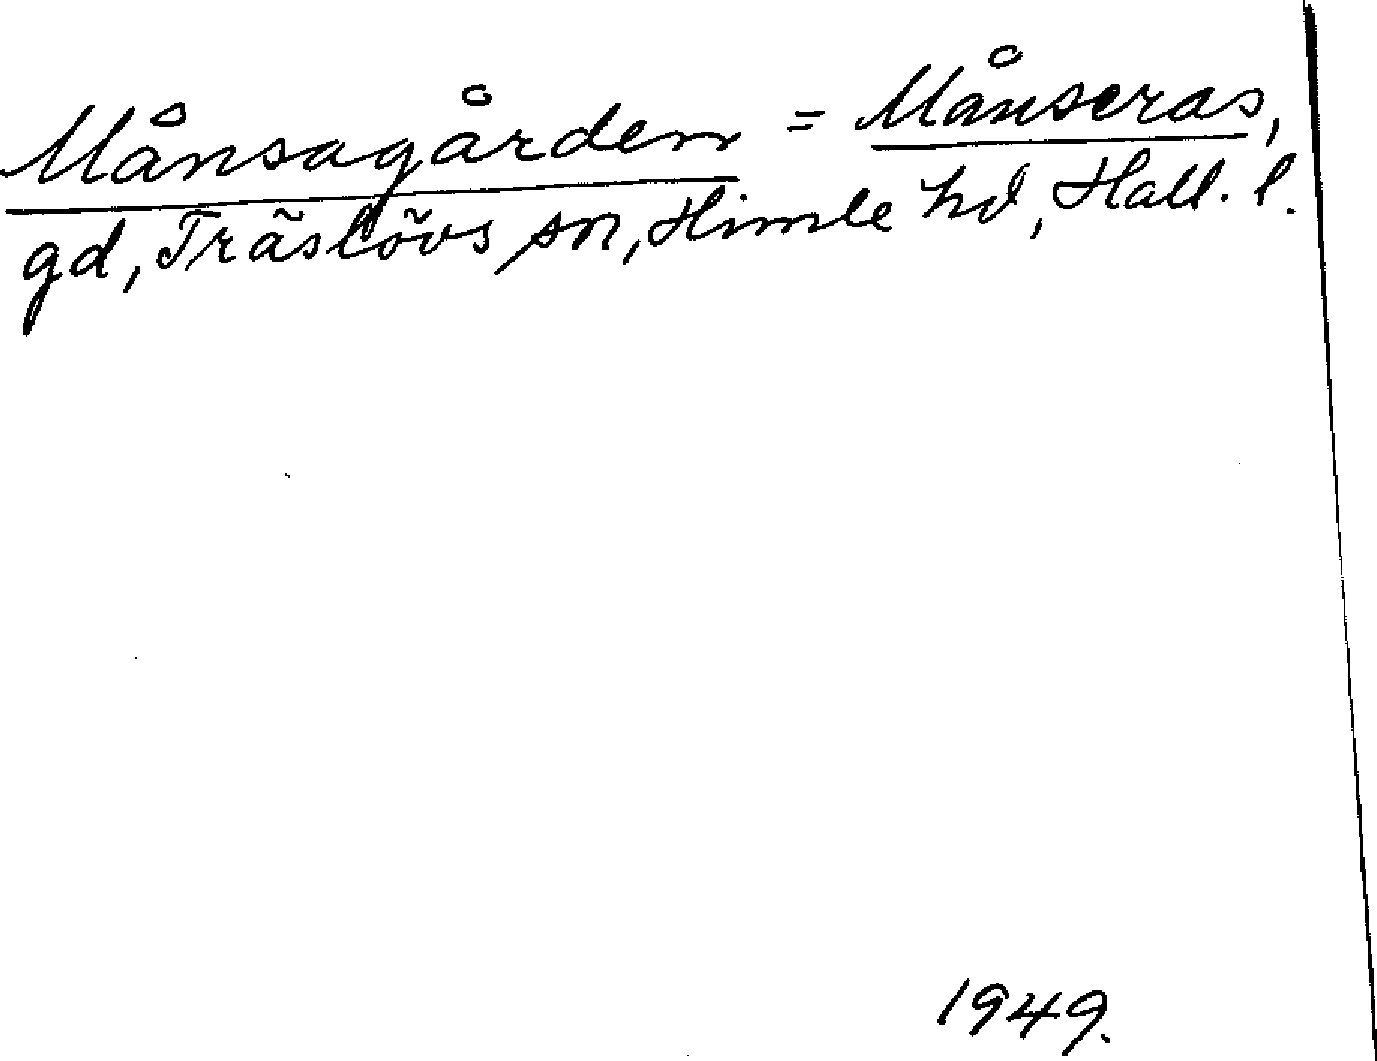 Månsagården = Månseras,
gd, Träslövs sn, Himle hd, Hall. l.
1949.